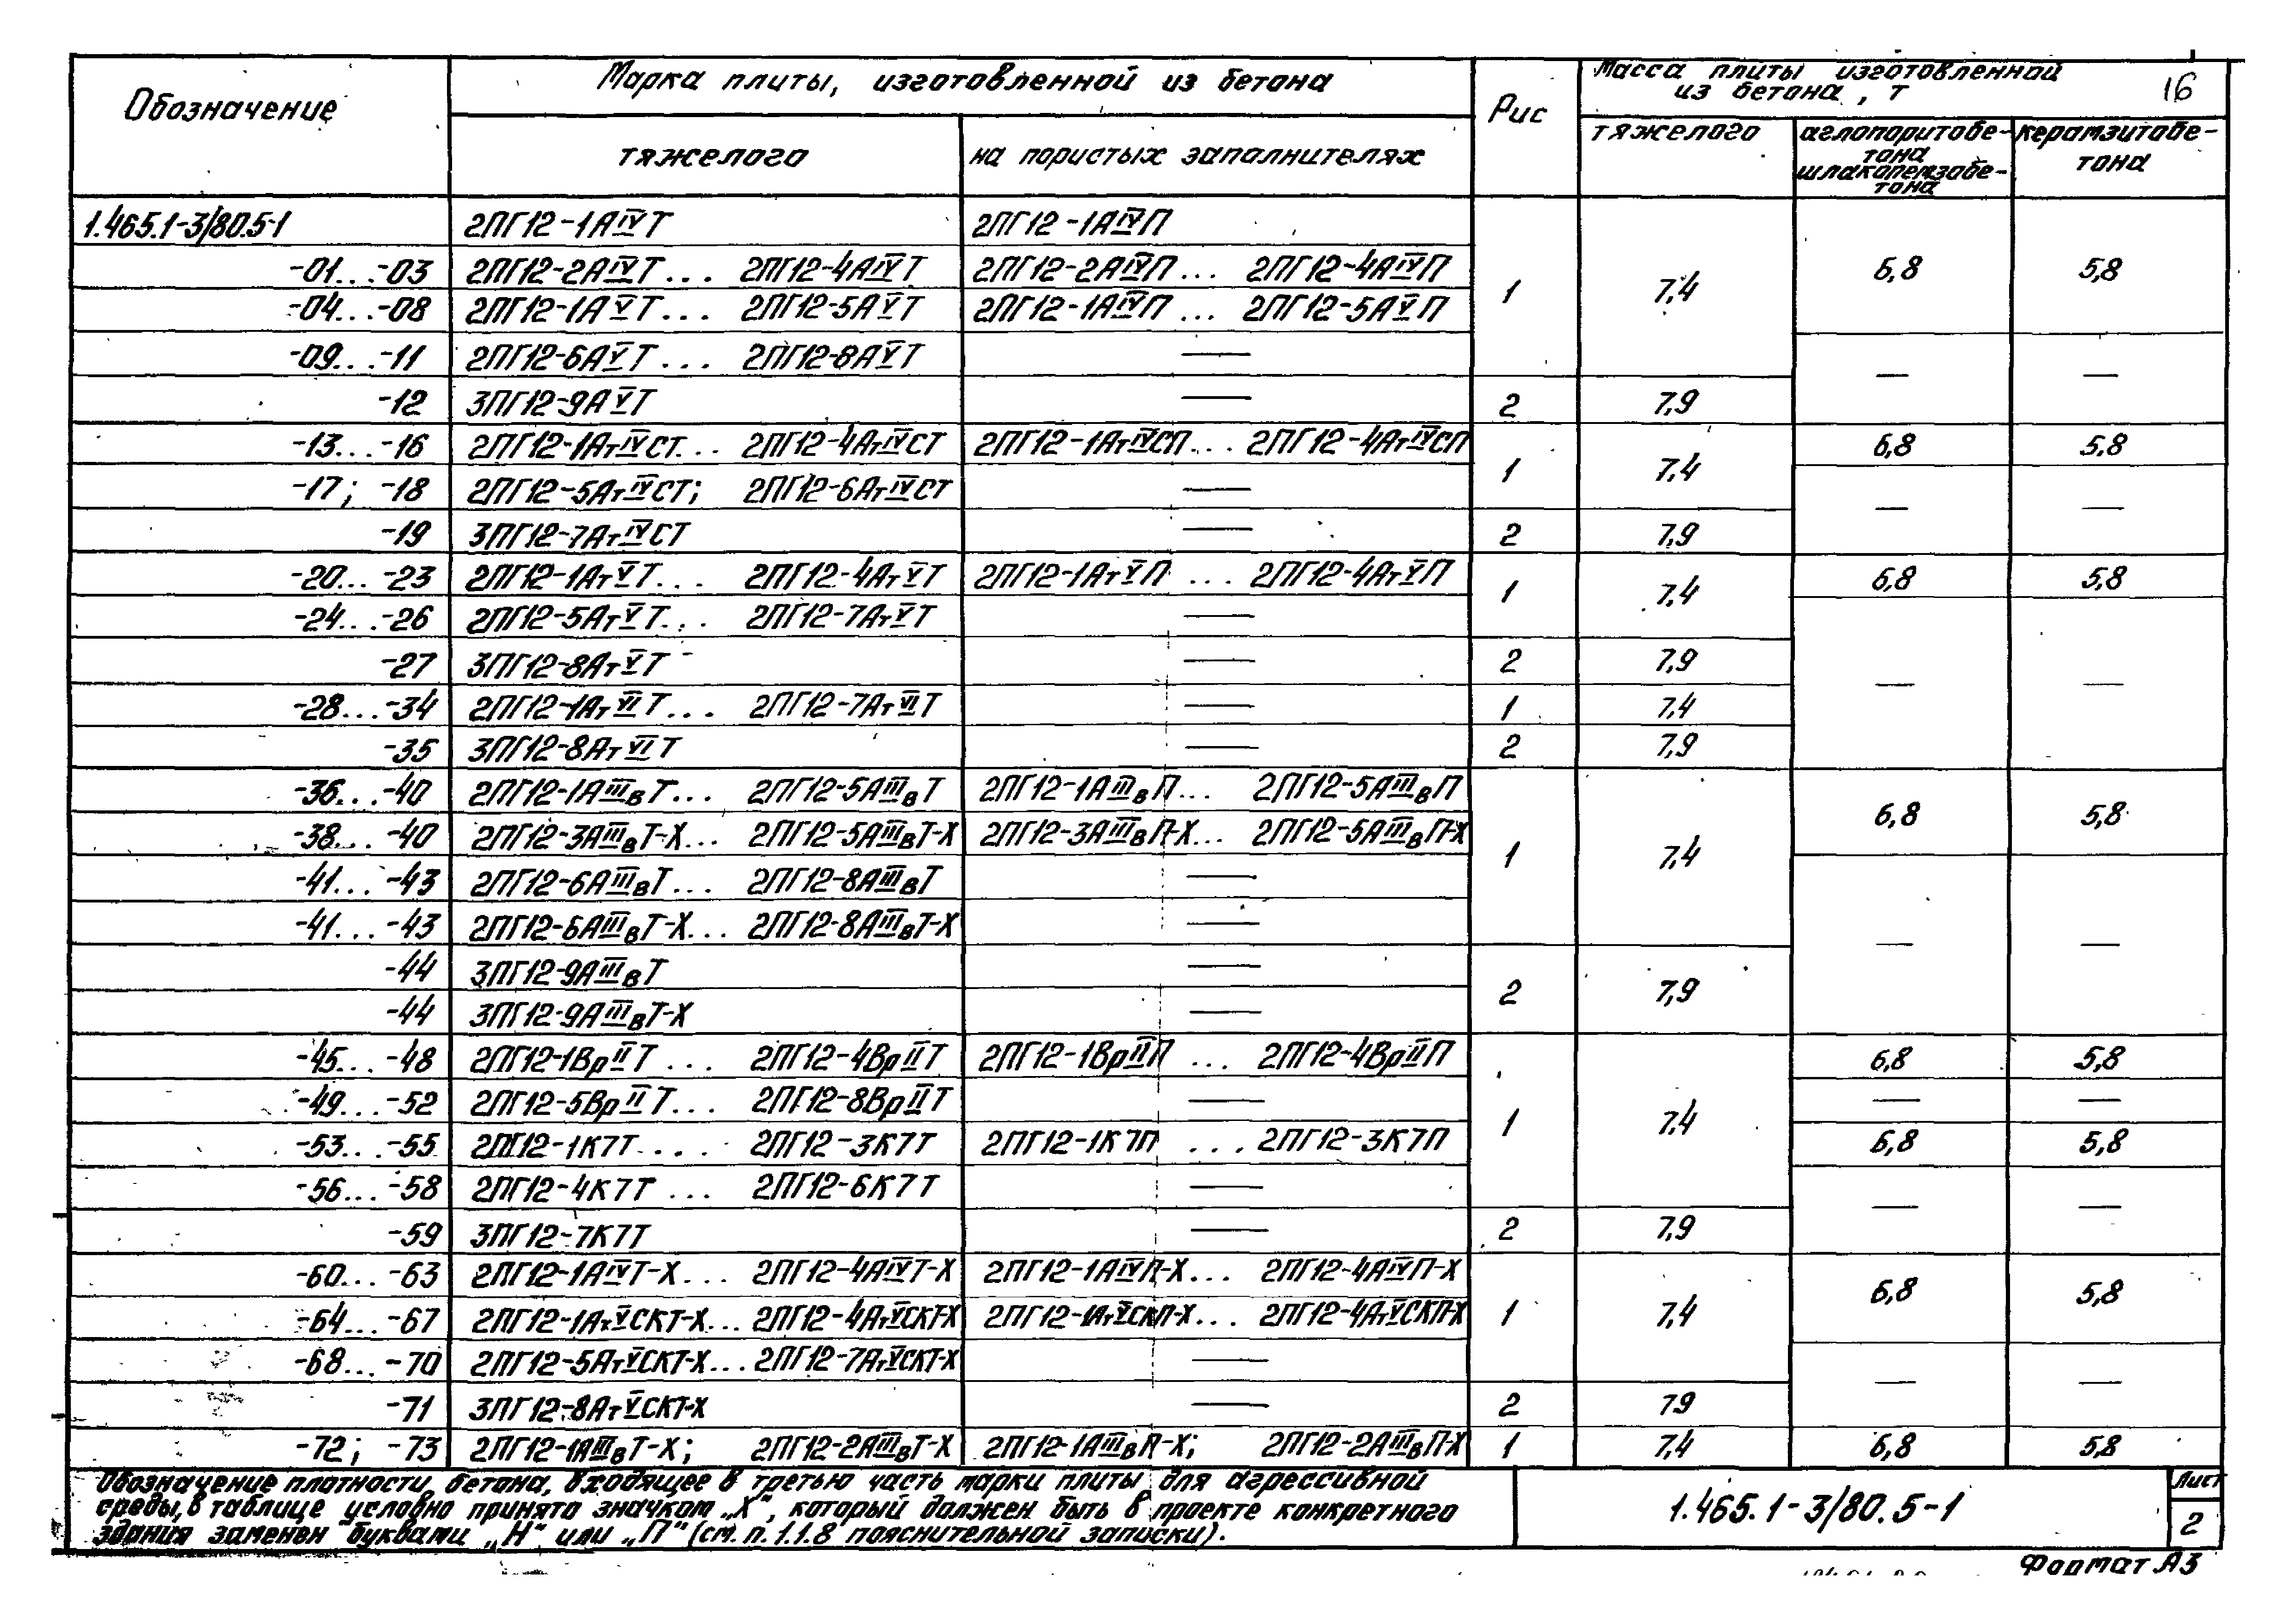 Марка плиты, изготовленной из бетона
Масса плиты изготовленной
из бетона, т
16
Обозначение
Рис
тяжелого
на пористых заполнителях
тяжелого
аглопоритобе-
тона
шлакопемзобе-
тона
керамзитобе-
тона
1.465.1-3/80.5-1 2ПГ12-1АIVТ 2ПГ12-1АIVП
-01...-03 2ПГ12-2АIVТ... 2ПГ12-4АIVТ 2ПГ12-2АIVП... 2ПГ12-4АIVП 1 7,4 6,8 5,8
-04...-08 2ПГ12-1АVТ... 2ПГ12-5АVТ 2ПГ12-1АIVП... 2ПГ12-5АVП
-09...-11 2ПГ12-6АVТ... 2ПГ12-8АVТ — — —
-12 3ПГ12-9АVТ — 2 7,9
-13...-16 2ПГ12-1АтIVСТ... 2ПГ12-4АтIVСТ 2ПГ12-1АтIVСП... 2ПГ12-4АтIVСП 1 7,4 6,8 5,8
-17; -18 2ПГ12-5АтIVСТ; 2ПГ12-6АтIVСТ — — —
-19 3ПГ12-7АтIVСТ — 2 7,9
-20...-23 2ПГ12-1АтVТ... 2ПГ12-4АтVТ 2ПГ12-1АтVП... 2ПГ12-4АтVП 1 7,4 6,8 5,8
-24...-26 2ПГ12-5АтVТ... 2ПГ12-7АтVТ —
-27 3ПГ12-8АтVТ — 2 7,9 — —
-28...-34 2ПГ12-1АтVIТ... 2ПГ12-7АтVIТ — 1 7,4
-35 3ПГ12-8АтVIТ — 2 7,9
-36...-40 2ПГ12-1АIIIвТ... 2ПГ12-5АIIIвТ 2ПГ12-1АIIIвП... 2ПГ12-5АIIIвП 6,8 5,8
-38...-40 2ПГ12-3АIIIвТ-Х... 2ПГ12-5АIIIвТ-Х 2ПГ12-3АIIIвП-Х... 2ПГ12-5АIIIвП-Х 1 7,4
-41...-43 2ПГ12-6АIIIвТ... 2ПГ12-8АIIIвТ —
-41...-43 2ПГ12-6АIIIвТ-Х... 2ПГ12-8АIIIвТ-Х — — —
-44 3ПГ12-9АIIIвТ — 2 7,9
-44 3ПГ12-9АIIIвТ-Х —
-45...-48 2ПГ12-1ВрIIТ... 2ПГ12-4ВрIIТ 2ПГ12-1ВрIIП... 2ПГ12-4ВрIIП 6,8 5,8
-49...-52 2ПГ12-5ВрIIТ... 2ПГ12-8ВрIIТ — 1 7.4 — —
-53...-55 2ПГ12-1К7Т.... 2ПГ12-3К7Т 2ПГ12-1К7П ... 2ПГ12-3К7П 6,8 5,8
-56...-58 2ПГ12-4К7Т ... 2ПГ12-6К7Т — — —
-59 3ПГ12-7К7Т — 2 7,9
-60...-63 2ПГ12-1АIVТ-Х... 2ПГ12-4АIVТ-Х 2ПГ12-1АIVП-Х... 2ПГ12-4АIVП-Х 6,8 5,8
-64...-67 2ПГ12-1АтVСКТ-Х... 2ПГ12-4АтVСКТ-Х 2ПГ12-1АтVСКП-Х... 2ПГ12-4АтVСКП-Х 1 7,4
-68...-70 2ПГ12-5АтVСКТ-Х... 2ПГ12-7АтVСКТ-Х — — —
-71 3ПГ12-8АтVСКТ-Х — 2 79
-72; -73 2ПГ12-1АIIIвТ-Х; 2ПГ12-2АIIIвТ-Х 2ПГ12-1АIIIвП-Х; 2ПГ12-2АIIIвП-Х 1 7,4 6,8 5,8
Обозначение плотности бетона, входящее в третью часть марки плиты для агрессивной
среды, в таблице условно принято значком „Х“, который должен быть в проекте конкретного
здания заменен буквами „Н“ или „П“ (см. п. 1.1.8 пояснительной записки).
1.465.1-3/80.5-1
Лист
2
Формат А3